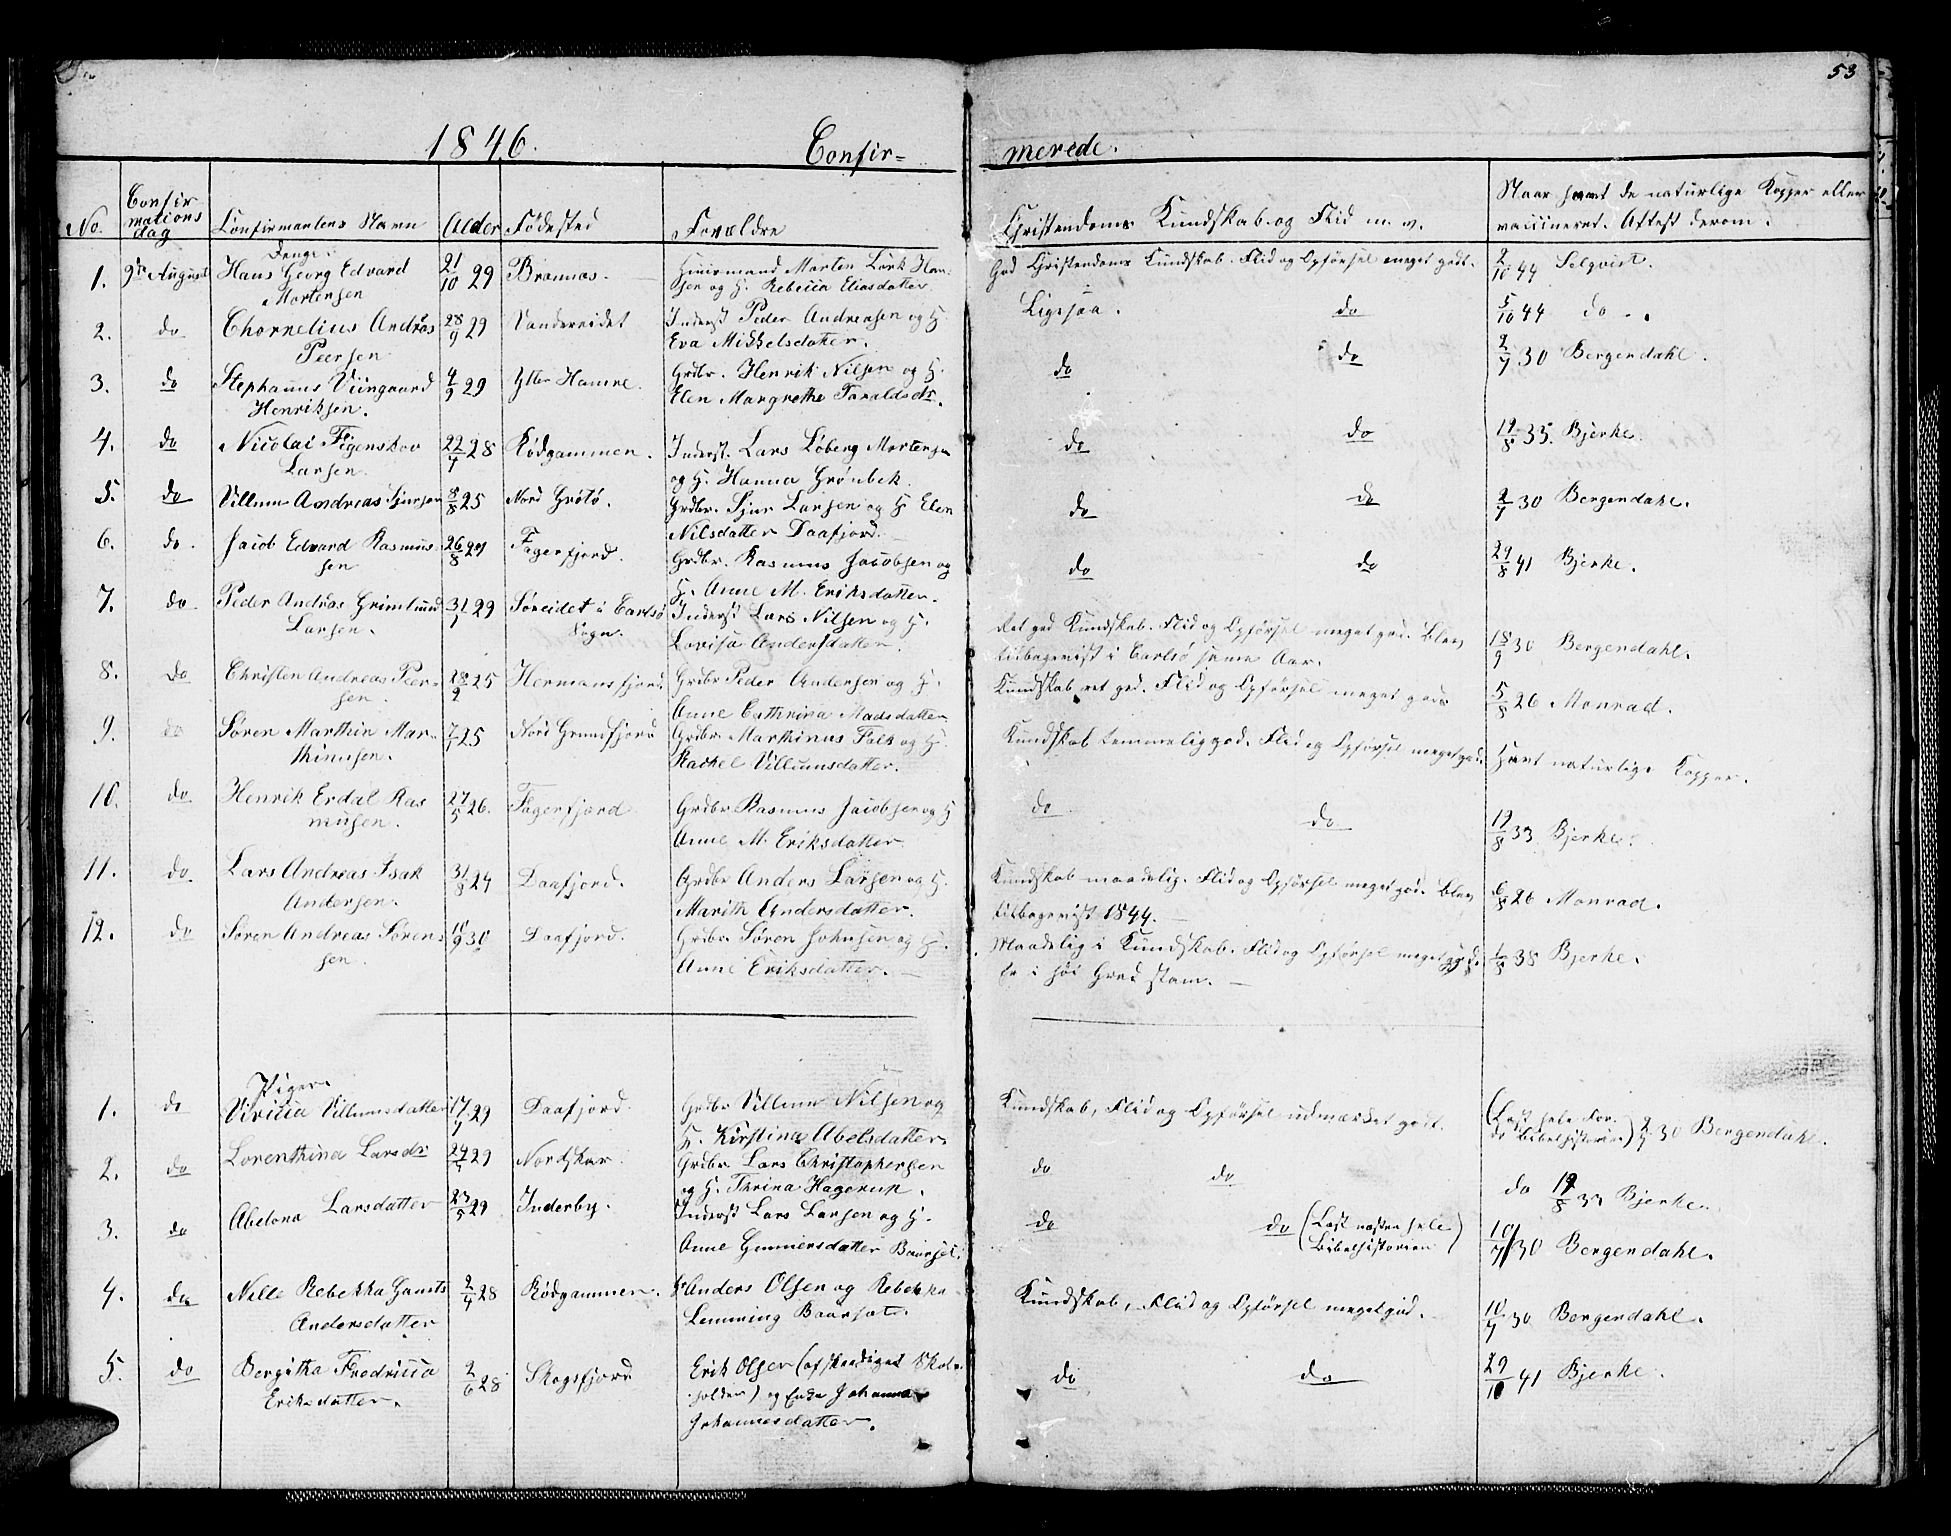 53
1846. Confir= merede.
No. Confirmations dag Confirmantens Navn Alder Fødested Forældre Christendoms Kundskab og Flid m. v. Naar havt de naturlige Kopper eller vaccineret. Attest derom.
Drenge.
1. 9de August Hans Georg Edvard Mortensen 21/10 29 Bramnæs. Huusmand Morten Lürk Hansen og H. Rebecca Eliasdatter. God Christendoms Kundskab. Flid og Opførsel meget godt. 2/10 44 Selqvist.
2. do Chornelius Andreas Peersen 28/9 29 Vandereidet Inderst Peder Andreasen og H. Eva Mikkelsdatter. Ligesaa. do 5/10 44 do
3. do Stephanus Viingaard Henriksen. 4/9 29 Ytre Hamre. Grdbr. Henrik Nilsen og H. Elen Margrethe Taraldsdr. do do 2/7 30 Bergendahl.
4. do Nicolai Figenskov Larsen. 22/7 28 Rödgammen. Inderst. Lars Løberg Mortensen og H. Hanna Grönbek. do do 19/8 33. Bjerke.
5. do Villum Andreas Sjursen 8/8 25 Nord Grötö. Grdbr. Sjur Larsen og H. Elen Nilsdatter Daafjord. do do 2/7 30 Bergendahl.
6. do. Jacob Edvard Rasmussen 26/8 29 Fagerfjord. Grdbr. Rasmus Jacobsen og H. Anne M. Eriksdatter. do do 29/8 41 Bjerke.
7. do. Peder Andreas Grimlund Larsen. 31/1 29 Søreidet i Carlsö Sogn. Inderst Lars Nilsen og H. Lovisa Andersdatter. Ret god Kundskab. Flid og Opførsel meget god. Blev tilbagevist i Carlsö samme Aar. 18/9 30 Bergendahl.
8. do Christen Andreas Peersen. 28/2 25 Hermansfjord. Grdbr Peder Andersen og H. Anne Cathrina Madsdatter Kundskab ret god. Flid og Opførsel meget god 5/8 26 Monrad.
9. do Søren Marthin Marthinusen. 7/1 25 Nord Grundfjord Grdbr. Marthinus Falk og H. Rachel Villumsdatter. Kundskab temmelig god. Flid og Opførsel meget god. Havt naturlige Kopper.
10. do Henrik Erdal Rasmusen. 27/5 26. Fagerfjord Grdbr Rasmus Jacobsen og H Anne M. Eriksdatter. do do 19/8 33 Bjerke.
11. do Lars Andreas Isak Andersen. 31/8 24 Daafjord. Grdbr Anders Larsen og H. Marith Andersdatter. Kundskab maadelig. Flid og Opførsel meget god. Blev tilbagevist 1844. 6/8 26 Monrad.
12. do Søren Andreas Sørensen. 11/9 30 Daafjord. Grdbr Søren Johnsen og H. Anne Eriksdatter. Maadelig i Kundskab. Flid og Opførsel meget god. Er i høi Grad stam. 38 Bjerke.
Piger.
1. do Viricia Villumsdatter 17/7 29 Daafjord. Grdbr Villum Nilsen og H. Kirstina Abelsdatter. Kundskab, Flid og Opførsel udmærket godt. (Læst hele Bibelhistorien) 2/7 30 Bergendahl.
2. do Lorenthina Larsdr 29 Nordskar. Grdbr Lars Christophersen og H. Thrina Hagerup. do do do 19/8 33 Bjerke.
3. do Abelona Larsdatter 23/5 29 Inderby. Inderst Lars Larsen og H. Anne Gunnersdatter do do (Læst næsten hele Bibelhistorien) 10/7 30 Bergendahl.
4. do Nille Rebekka Andersdatter 2/4 28 Rödgammen. Anders Olsen og Rebekka Lemming Kundskab, Flid og Opførsel meget god. 10/7 30 Bergendahl.
5. do Bergitha Fredricia Eriksdatter. 2/6 28 Skogsfjord Erik Olsen (afskediget Skoleholder) og Johanna Johannesdatter. do do 29/10 41 Bjerke.